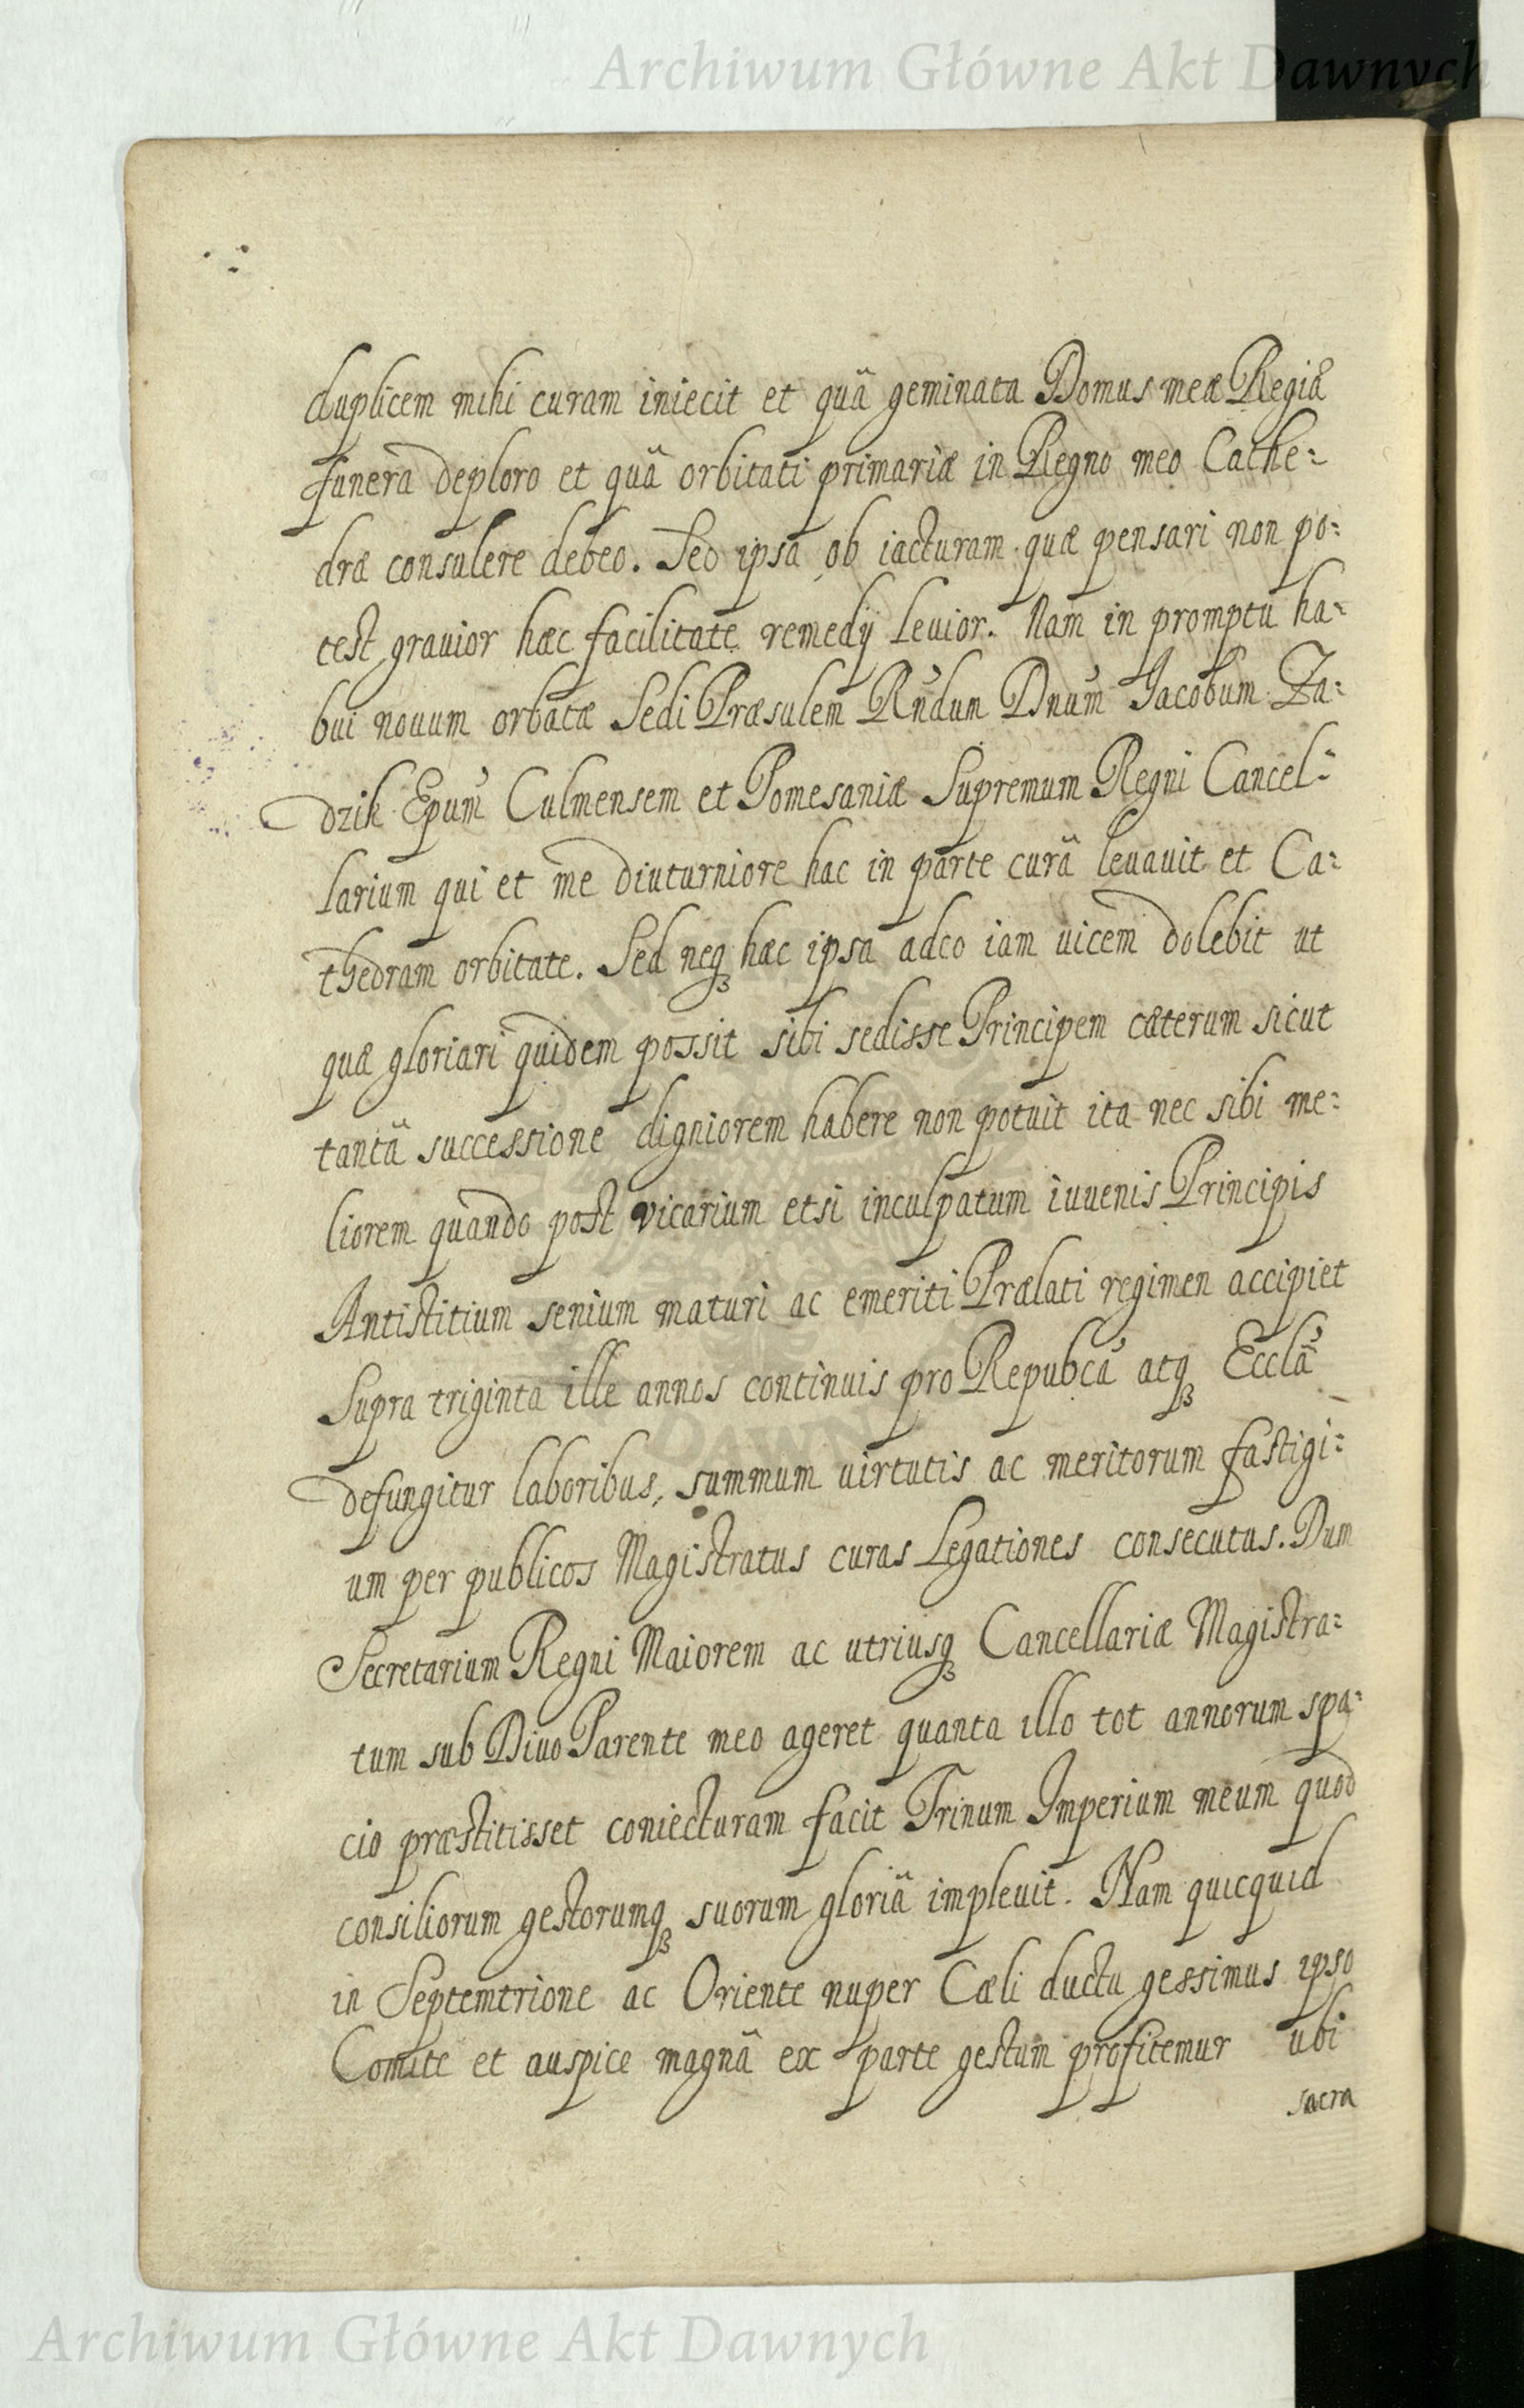 Archiwum Główne Akt Dawnych
duplicem mihi curam iniecit et quâ geminata Domus meæ Regiæ
funera deploro et quâ orbitati primariæ in Regno meo Cathe:
dræ consulere debeo. Sed ipsa ob iacturam quæ pensari non po:
test, grauior hæc facilitate remedij leuior. Nam in promptu ha:
bui nouum orbatæ Sedi Præsulem Rndum Dnum Jacobum Za:
dzik Epum Culmensem et Pomesaniæ Supremum Regni Cancel:
larium qui et me diuturniore hac in parte curâ leuauit et Ca:
thedram orbitate. Sed neqꝫ hæc ipsa adeo iam uicem dolebit ut
quæ gloriari quidem possit sibi sedisse Principem cæterum sicut
tantâ successione digniorem habere non potuit ita nec sibi me:
liorem quando post vicarium etsi inculpatum iuuenis Principis
Antistitium senium maturi ac emeriti Prælati regimen accipiet
Supra triginta ille annos continuis pro Repubcâ atqꝫ Ecclâ
defungitur laboribus, summum uirtutis ac meritorum fastigi:
um per publicos Magistratus curas Legationes consecutus. Dum
Secretarium Regni Maiorem ac utriusqꝫ Cancellariæ Magistra:
tum sub Diuo Parente meo ageret quanta illo tot annorum spa:
cio præstitisset coniecturam facit Trinum Imperium meum quod
consiliorum gestorumqꝫ suorum gloriâ impleuit. Nam quicquid
in Septemtrione ac Oriente nuper Cæli ductu gessimus ipso
Comite et auspice magnâ ex parte gestum profitemur ubi
sacra
Archiwum Główne Akt Dawnych